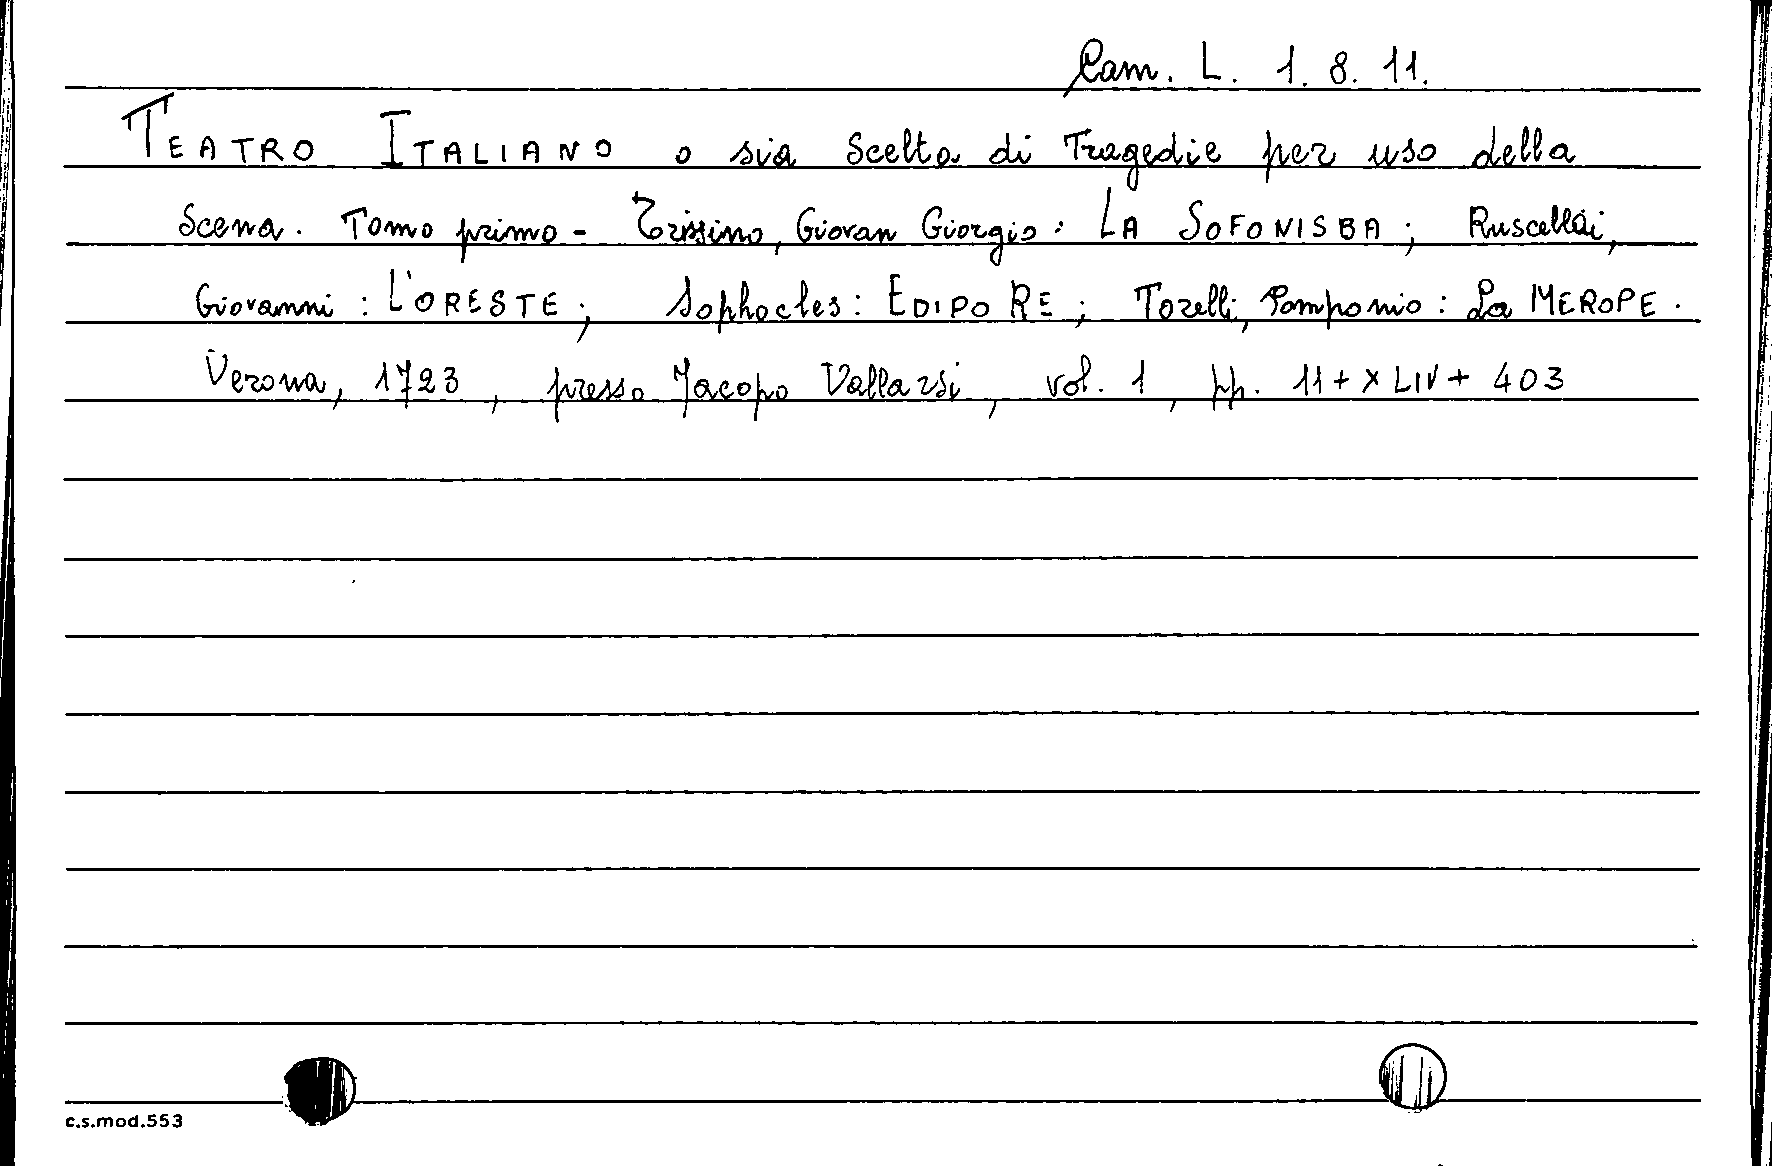 Cam. L. 1. 8. 11.
TEATRO ITALIANO o sia Scelta di Tragedie per uso della
Scena. Tomo primo - Trissino, Giovan Giorgio: LA SOFONISBA; Ruscellai,
Giovanni: L'ORESTE; Sophocles: EDIPO RE; Torelli, Pomponio: La MEROPE.
Verona, 1723, presso Jacopo Vallarsi, vol. 1, pp. 11 + XLIV + 403
c.s.mod.553